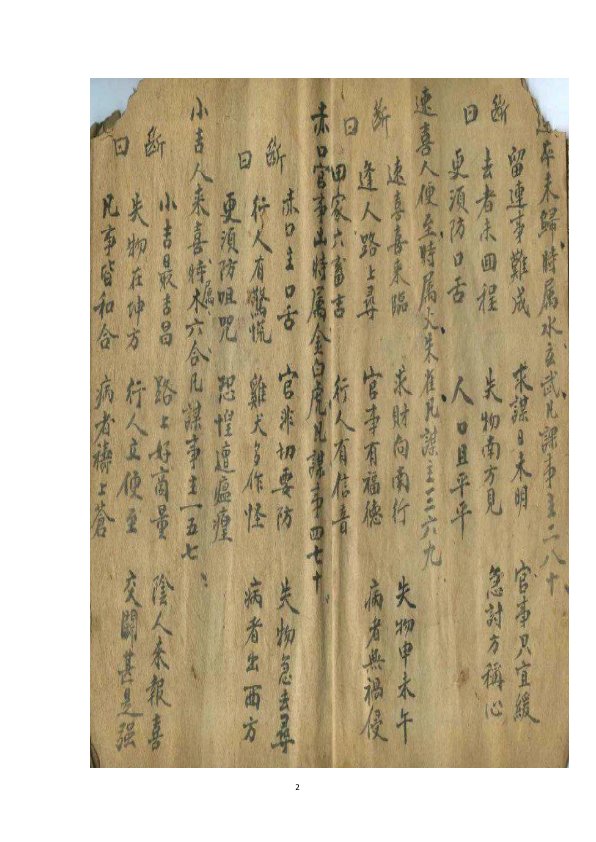 卒未歸時属水玄武凡謀事主二八十
斷曰
留連事難成 求謀日未明 官事只宜緩
去者未回程 失物南方見 急討方稱心
更須防口舌 人口且平平
速喜人便至時属火朱雀凡謀主三六九
斷曰
速喜喜來臨 求財向南行 失物申未午
逢人路上尋 官事有福德 病者無禍侵
田家六畜吉 行人有信音
赤口官事凶時属金白虎凡謀事四七十
斷曰
赤口主口舌 官非切要防 失物急去尋
行人有驚慌 雞犬多作怪 病者出西方
更須防咀咒 恐惶遭瘟
小吉人来喜時属木六合凡謀事主一五七
斷曰
小吉最吉昌 路上好商量 陰人来報喜
失物在坤方 行人立便至 交関甚是强
凡事皆和合 病者禱上蒼
2